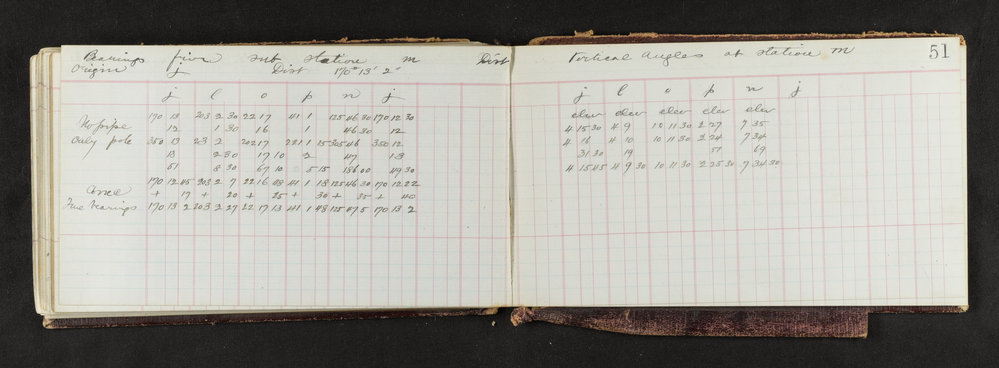 Bearings from sub station m Dist
Origin j Dist 170° 13' 2"
j l o p n j
170 13 203 2 30 22 17 41 1 125 46 30 170 12 30
No pipe 12 1 30 16 1 46 30 12
only pole 350 13 23 2 202 17 221 1 15 305 46 350 12
13 2 30 17 10 2 47 13
51 8 30 67 10 5 15 186 00 49 30
170 12 45 203 2 7 22 16 48 41 1 18 125 46 30 170 12 22
+ 17 + 20 + 25 + 30 + 35 + 40
True bearings 170 13 2 203 2 27 22 17 13 41 1 48 125 47 5 170 13 2
Vertical angles at station m 51
j l o p n j
elev elev elev elev elev
4 15 30 4 9 10 11 30 2 27 7 35
4 16 4 10 10 11 30 2 24 7 34
31 30 19 51 69
4 15 45 4 9 30 10 11 30 2 25 30 7 34 30